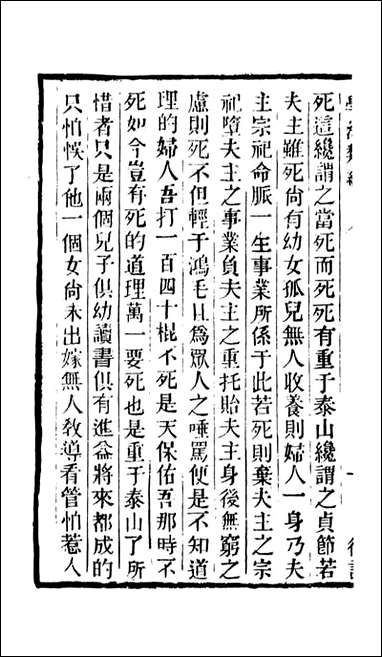 死這纔謂之當死而死死有重于泰山纔謂之貞節若
夫主雖死尚有幼女孤兒無人收養則婦人一身乃夫
主宗祀命脈一生事業所係于此若死則棄夫主之宗
祀墮夫主之事業負夫主之重托貽夫主身後無窮之
慮則死不但輕于鴻毛且爲眾人之唾罵便是不知道
理的婦人吾打一百四十棍不死是天保佑吾那時不
死如今豈有死的道理萬一要死也是重于泰山了所
惜者只是兩個兒子俱幼讀書俱有進益將來都成的
只怕悞了他一個女尚未出嫁無人敎導看管怕惹人